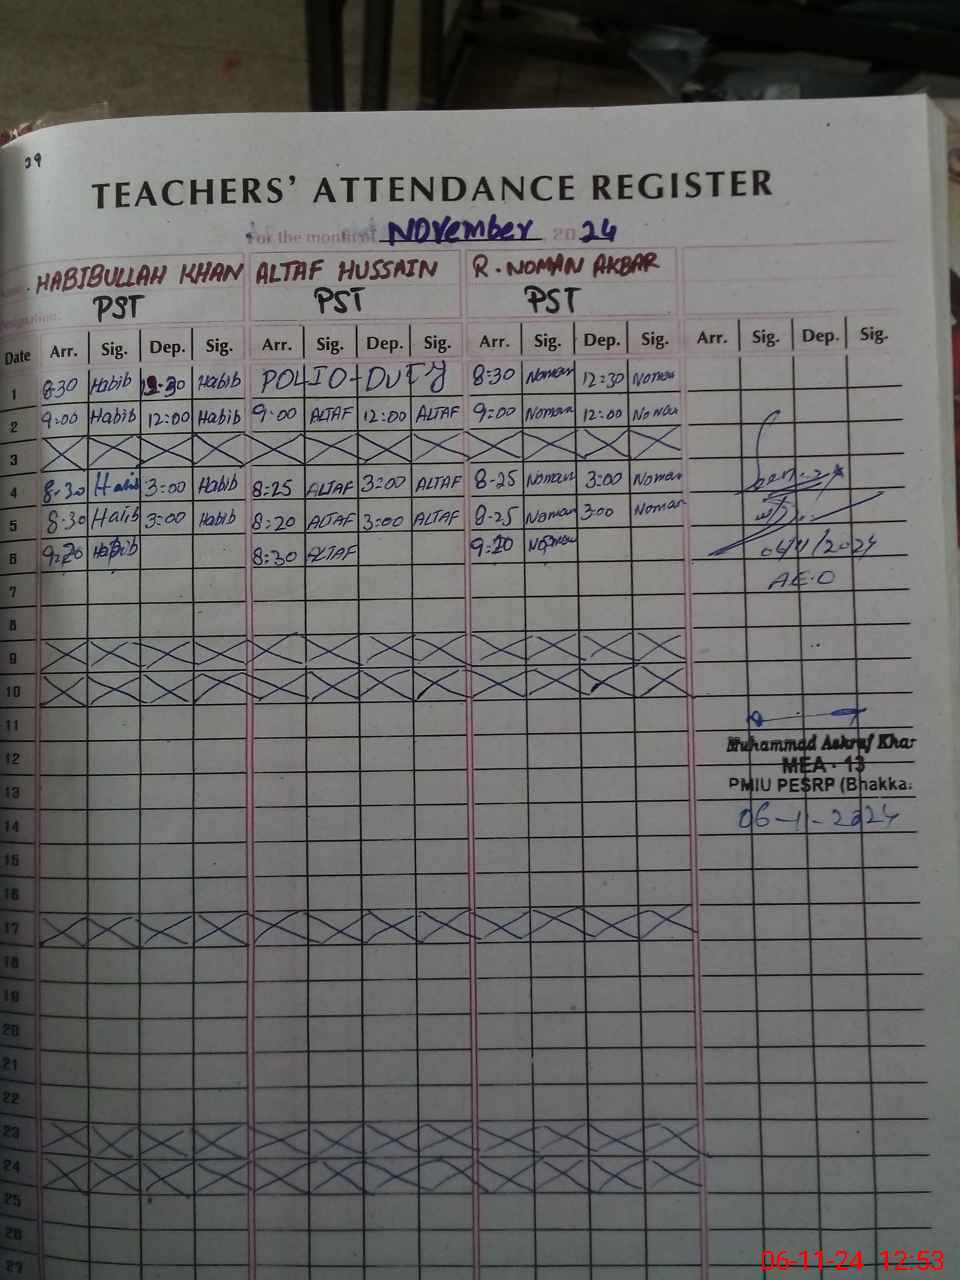 29
TEACHERS' ATTENDANCE REGISTER
For the month of November, 2024
HABIBULLAH KHAN ALTAF HUSSAIN R. NOMAN AKBAR
Designation: PST PST PST
Date Arr. Sig. Dep. Sig. Arr. Sig. Dep. Sig. Arr. Sig. Dep. Sig. Arr. Sig. Dep. Sig.
1 8-30 Habib 12-30 Habib POLIO-DUTY 8-30 Noman 12:30 Noman
2 9:00 Habib 12:00 Habib 9:00 ALTAF 12:00 ALTAF 9:00 Noman 12:00 Noman
3
4 8-30 Habib 3:00 Habib 8:25 ALTAF 3:00 ALTAF 8-25 Noman 3:00 Noman
5 8-30 Habib 3:00 Habib 8:20 ALTAF 3:00 ALTAF 8-25 Noman 3:00 Noman
6 9:20 Habib 8:30 ALTAF 9:20 Noman 06/11/2024
7 A.E.O
8
9
10
11
Muhammad Ashraf Khan
12
MEA - 13
13 PMIU PESRP (Bhakka
14 06-11-2024
15
16
17
18
19
20
21
22
23
24
25
26
27
06-11-24 12:53